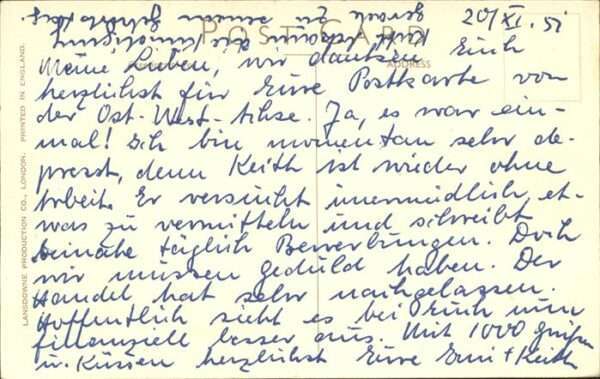 20/XI. 51
POST CARD
ADDRESS
Meine Lieben, wir danken Euch
herzlichst für Eure Postkarte von
der Ost-West-Achse. Ja, es war ein-
mal! Ich bin momentan sehr de-
presst, denn Keith ist wieder ohne
Arbeit. Er versucht unermüdlich, et-
was zu vermitteln und schreibt
beinahe täglich Bewerbungen. Doch
wir müssen geduld haben. Der
Handel hat sehr nachgelassen.
Hoffentlich sieht es bei Euch nun
finanziell besser aus. Mit 1000 Grüßen
u. Küssen herzlichst Eure Emi + Keith
Keith bekam die Kündigung
gerade zu seinem Geburtstag
LANSDOWNE PRODUCTION CO., LONDON. PRINTED IN ENGLAND.